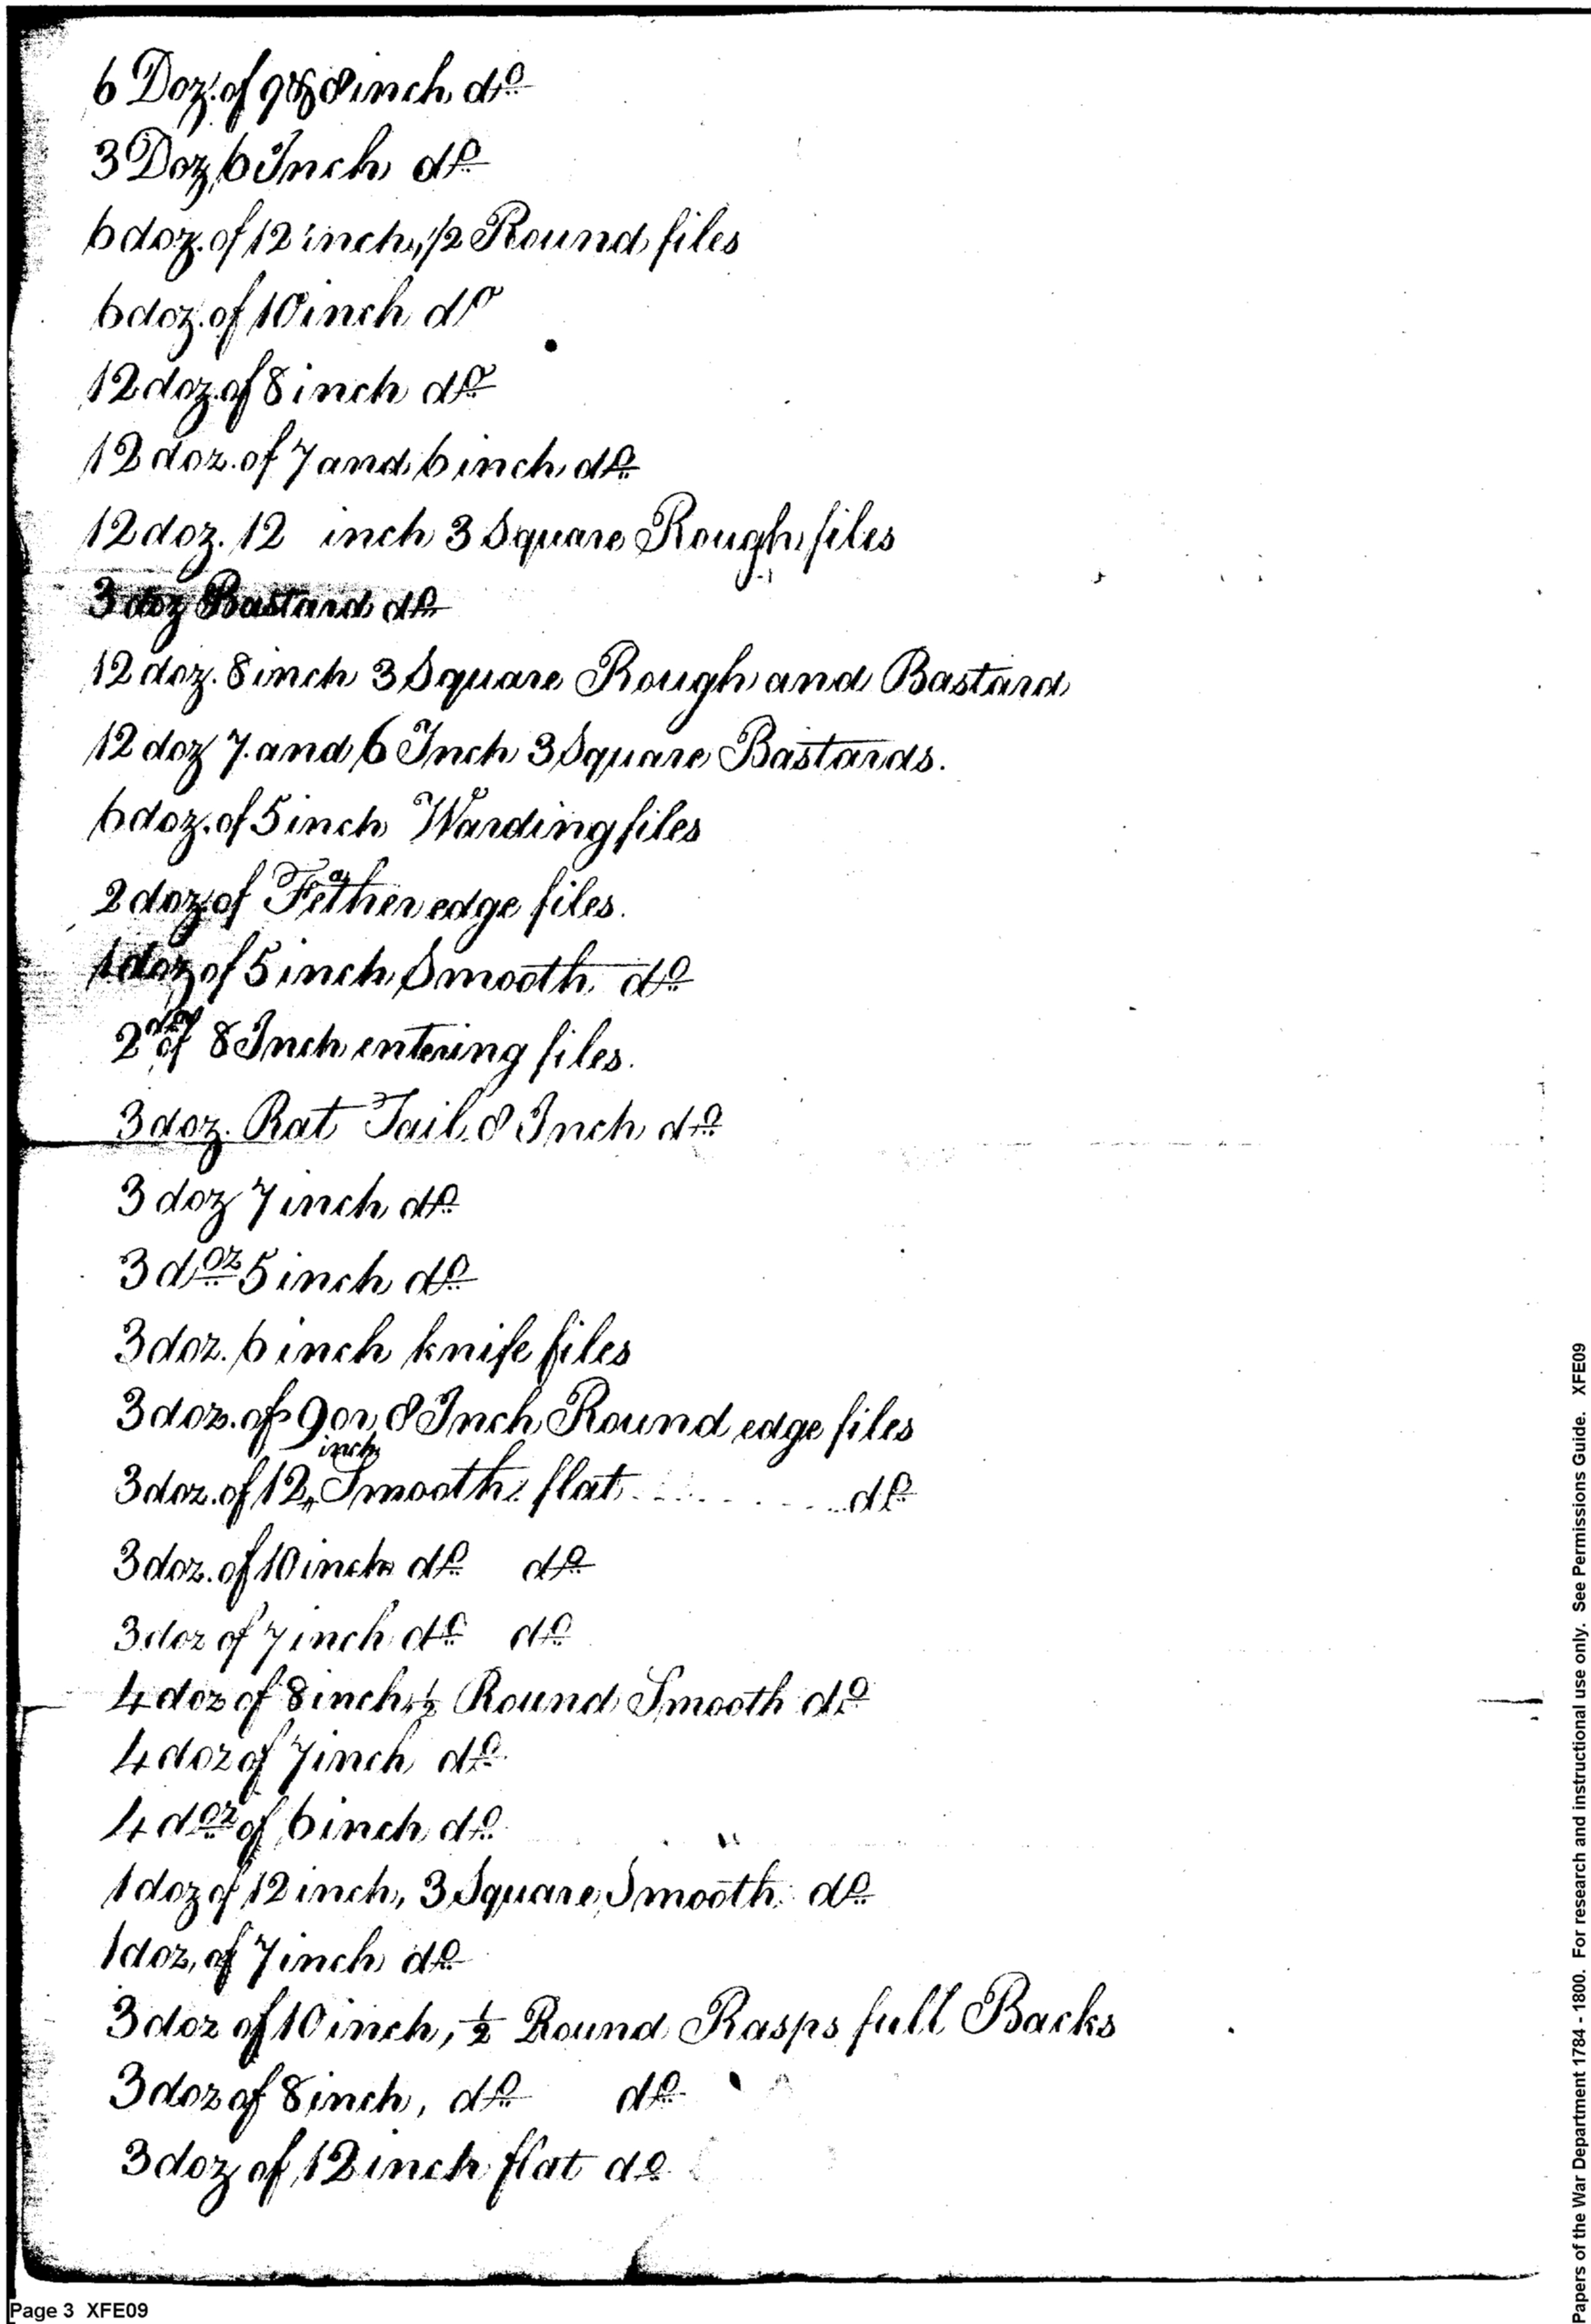 6 Doz. of 9 & 8 inch do
3 Doz, 6 Inch do
6 doz. of 12 inch, 1/2 Round files
6 doz. of 10 inch do
12 doz. of 8 inch do
12 doz. of 7 and 6 inch do
12 doz. 12 inch 3 Square Rough files
3 doz Bastard do
12 doz. 8 inch 3 Square Rough and Bastard
12 doz 7. and 6 Inch 3 Square Bastards.
6 doz. of 5 inch Warding files
2 doz. of Feather edge files.
1 doz of 5 inch Smooth do
2 doz of 8 Inch entering files.
3 doz. Rat Tail 8 Inch do
3 doz 7 inch do
3 doz 5 inch do
3 doz. 6 inch knife files
3 doz. of 9 or 8 Inch Round edge files
3 doz. of 12 inch Smooth flat do
3 doz. of 10 inch do do
3 doz of 7 inch do do
4 doz of 8 inch, 1/2 Round Smooth do
4 doz of 7 inch do
4 doz of 6 inch do
1 doz of 12 inch, 3 Square Smooth do
1 doz, of 7 inch do
3 doz of 10 inch, 1/2 Round Rasps full Backs
3 doz of 8 inch, do do
3 doz of 12 inch flat do
Page 3 XFE09
Papers of the War Department 1784 - 1800. For research and instructional use only. See Permissions Guide. XFE09